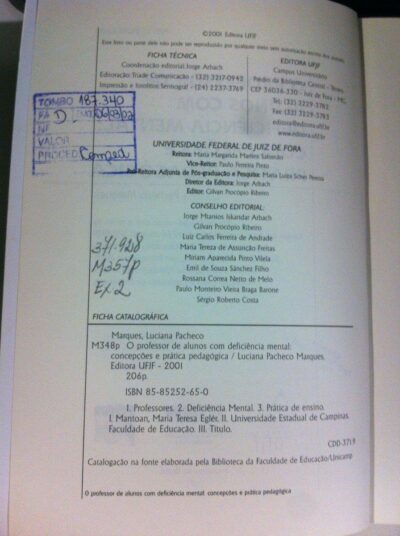 ©2001 Editora UFJF
Este livro ou parte dele não pode ser reproduzido por qualquer meio sem autorização escrita do
FICHA TÉCNICA
Coordenação editorial: Jorge Arbach
Editoração: Trade Comunicação - (32) 3217-0942
Impressão e fotolitos: Sermograf - (24) 2237-3769
EDITORA UFJF
Campus Universitário
Prédio da Biblioteca Central - Térreo
CEP 36036-330 - Juiz de Fora - MG
Tel: (32) 3229-3782
Fax: (32) 3229-3783
editora@editora.ufjf.br
www.editora.ufjf.br
TOMBO 187.340
D
NF
VALOR
PROCED Comped
UNIVERSIDADE FEDERAL DE JUIZ DE FORA
Reitora: Maria Margarida Martins Salomão
Vice-Reitor: Paulo Ferreira Pinto
Pró-Reitora Adjunta de Pós-graduação e Pesquisa: Maria Luiza Scher Pereira
Diretor da Editora: Jorge Arbach
Editor: Gilvan Procópio Ribeiro
CONSELHO EDITORIAL:
Jorge Mtanios Iskandar Arbach
Gilvan Procópio Ribeiro
Luiz Carlos Ferreira de Andrade
Maria Tereza de Assunção Freitas
Miriam Aparecida Pinto Vilela
Emil de Souza Sánchez Filho
Rossana Correa Netto de Melo
Paulo Monteiro Vieira Braga Barone
Sérgio Roberto Costa
371.928
M357p
Ex.2
FICHA CATALOGRÁFICA
Marques, Luciana Pacheco
M348p O professor de alunos com deficiência mental:
concepções e prática pedagógica / Luciana Pacheco Marques.
Editora UFJF - 2001
206p.
ISBN 85-85252-65-0
1. Professores. 2. Deficiência Mental. 3. Prática de ensino.
I. Mantoan, Maria Teresa Eglér. II. Universidade Estadual de Campinas.
Faculdade de Educação. III. Título.
CDD-371.9
Catalogação na fonte elaborada pela Biblioteca da Faculdade de Educação/Unicamp
O professor de alunos com deficiência mental: concepções e prática pedagógica